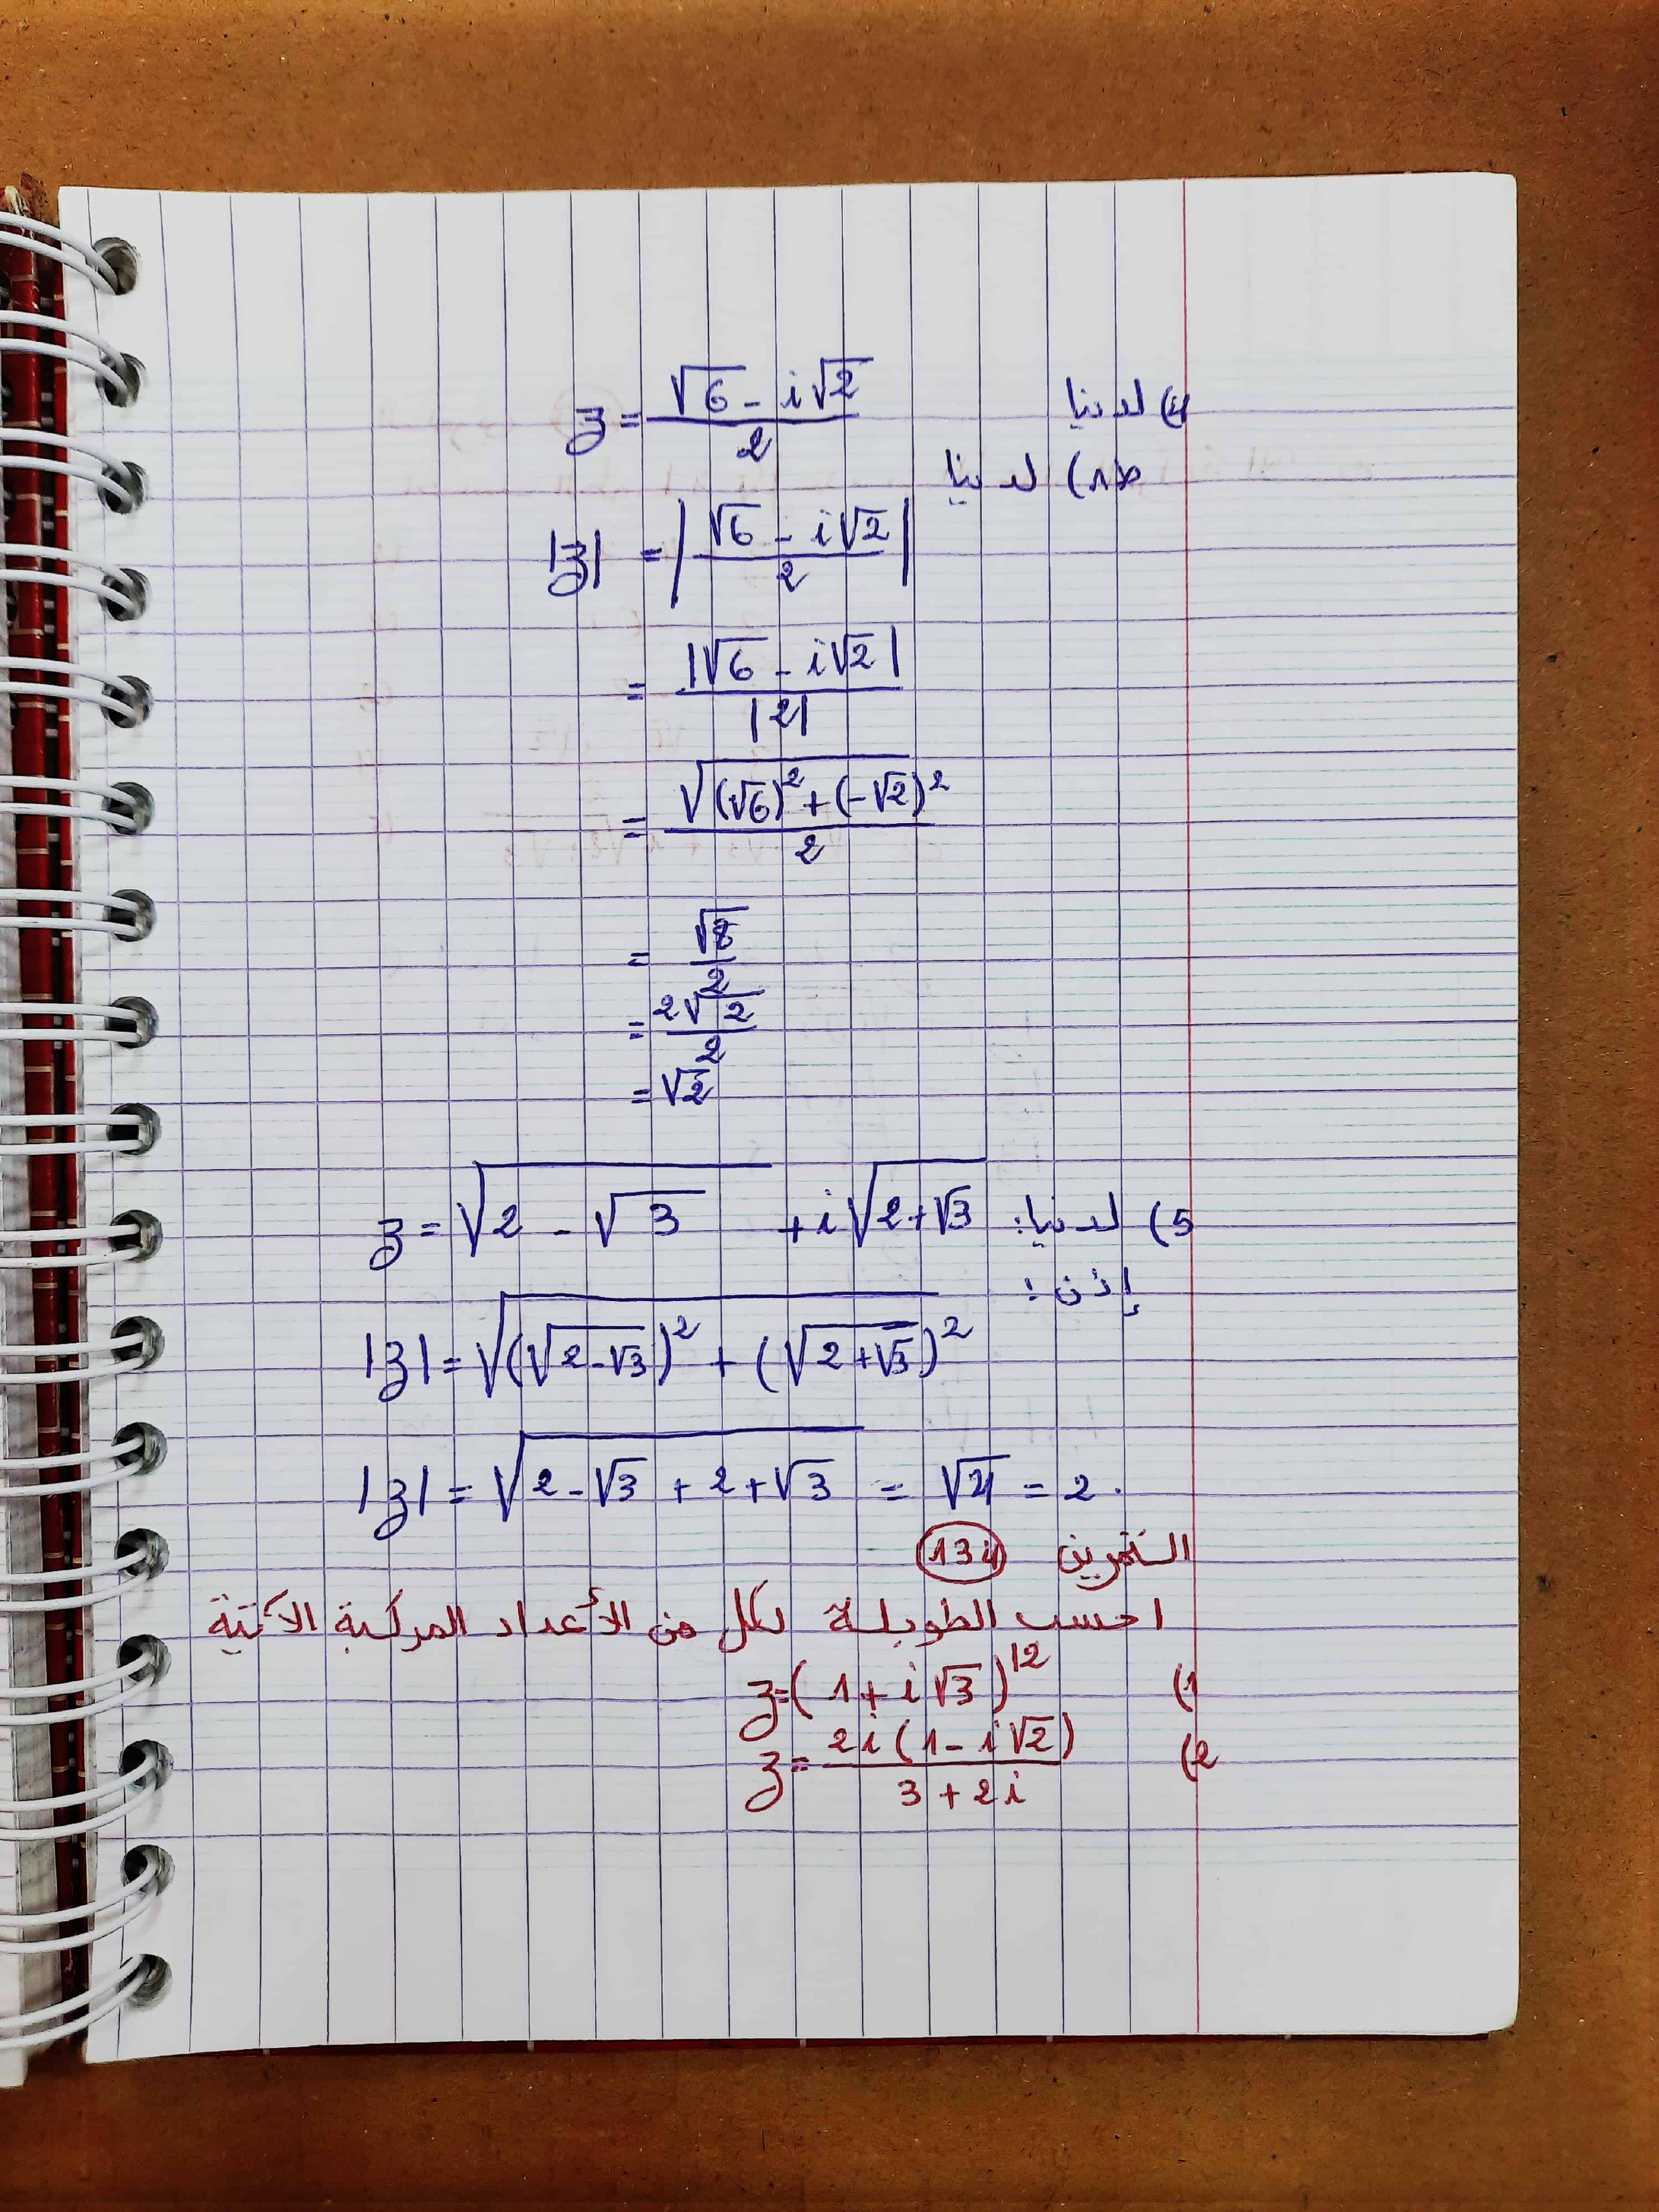 4) لدينا z = (√6 - i√2)/2
ط1) لدينا
|z| = |(√6 - i√2)/2|
= |√6 - i√2|/|2|
= √((√6)² + (-√2)²)/2
= √8/2
= 2√2/2
= √2
5) لدينا: z = √(2 - √3) + i√(2+√3)
إذن:
|z| = √((√(2-√3))² + (√(2+√3))²)
|z| = √(2-√3 + 2+√3) = √4 = 2.
التمرين 134
احسب الطويلة لكل من الأعداد المركبة الآتية
1) z=(1+i√3)^12
2) z= 2i(1-i√2)/(3+2i)